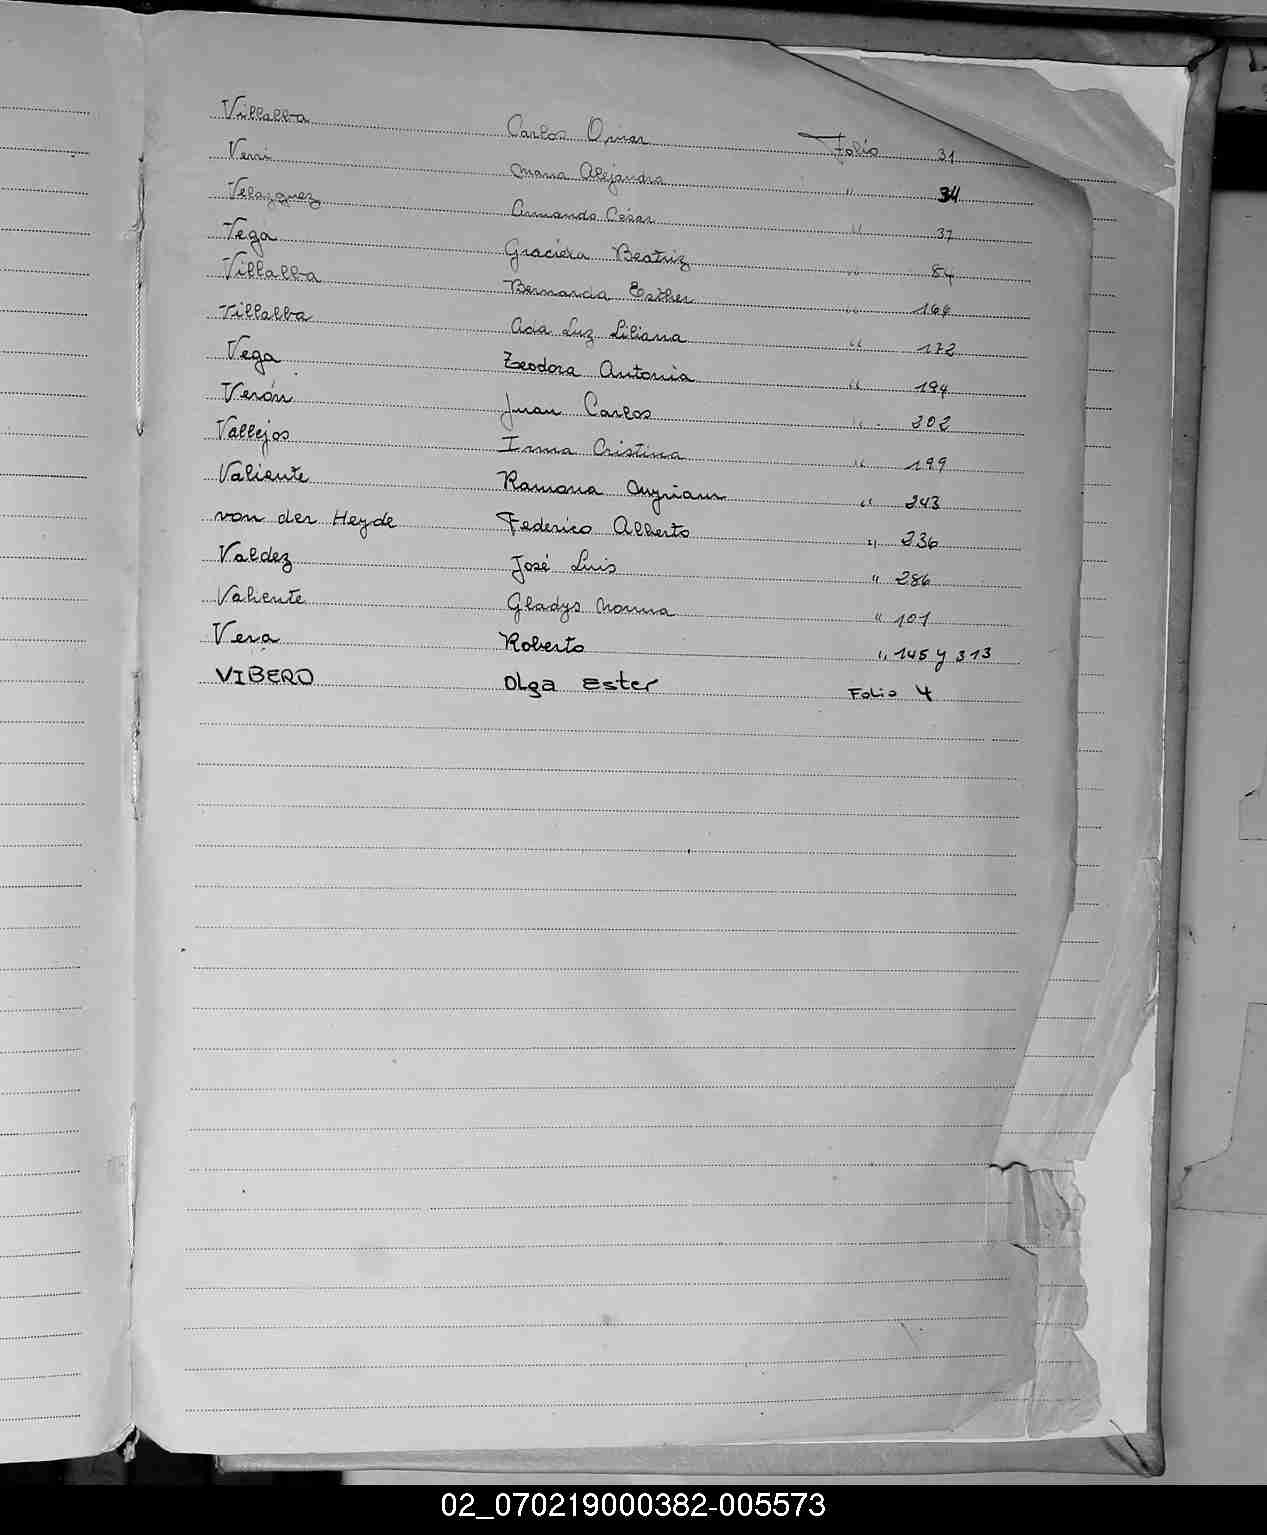 Villalba Carlos Omar Folio 31
Verri Maria Alejandra " 34
Velazquez Armando César " 37
Vega Graciela Beatriz " 84
Villalba Bernarda Esther " 164
Villalba Ada Luz Liliana " 172
Vega Teodora Antonia " 194
Verón Juan Carlos " 202
Vallejos Irma Cristina " 199
Valiente Ramona Myriam " 243
von der Heyde Federico Alberto " 236
Valdez José Luis " 286
Valiente Gladys Norma " 101
Vera Roberto " 145 y 313
VIBERO Olga Ester Folio 4
02_070219000382-005573